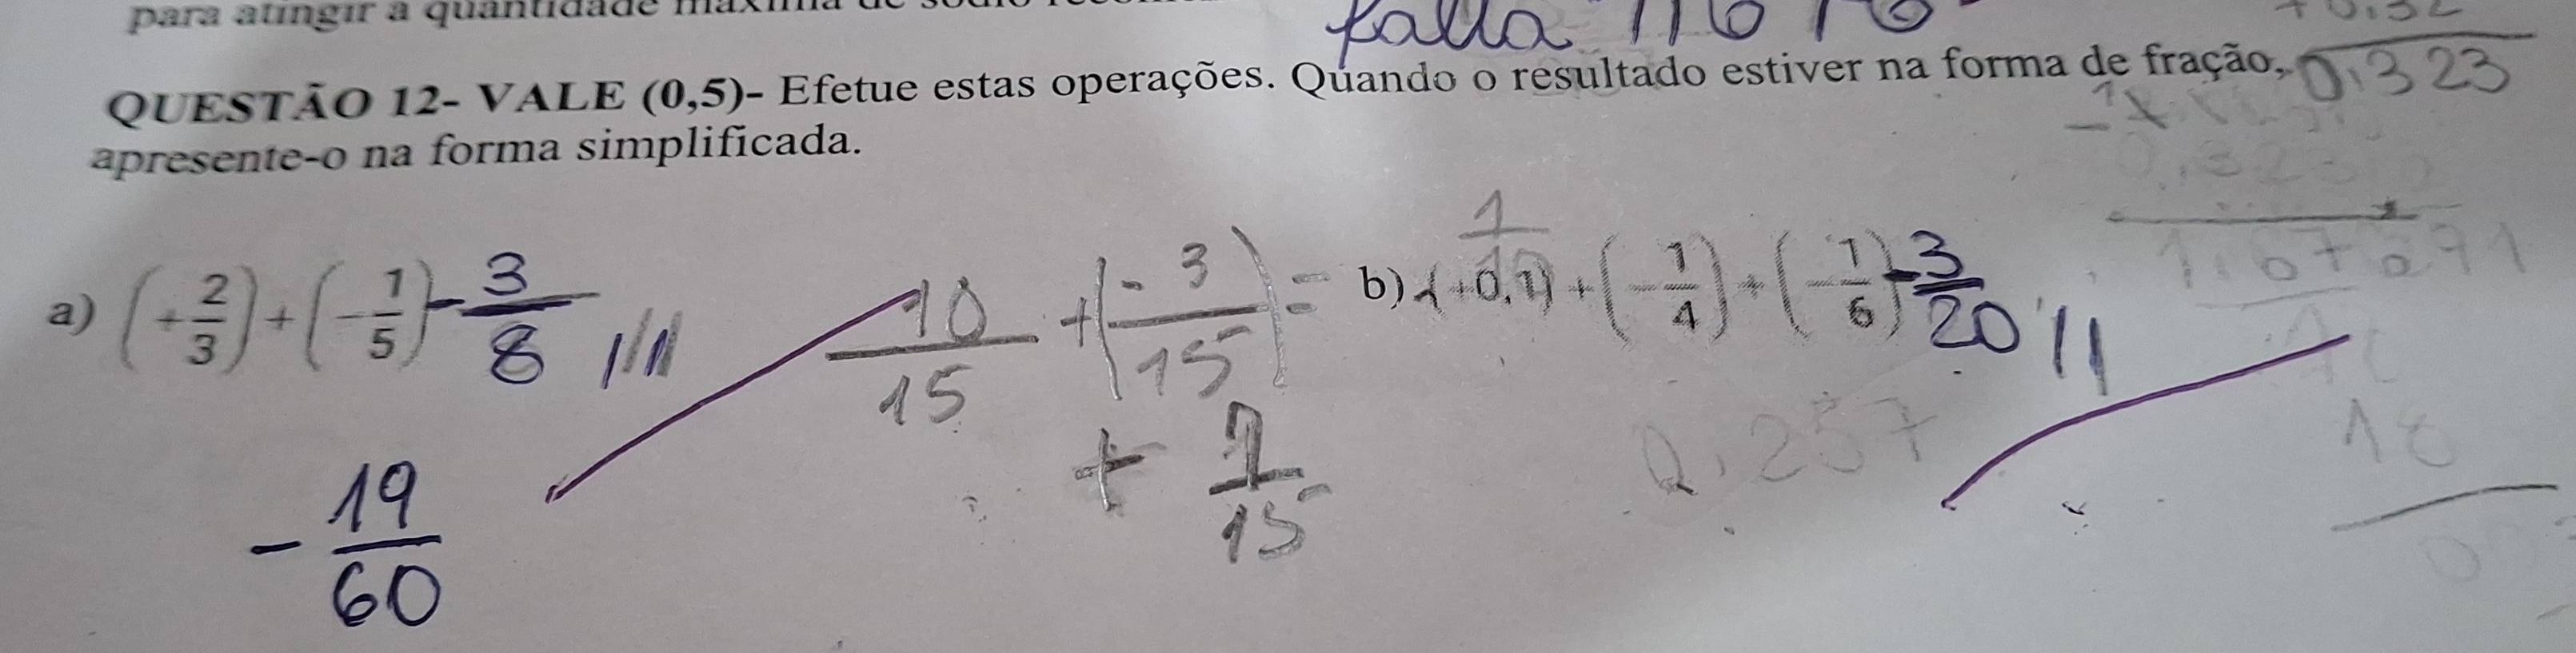 para atingir a quantidade máxima de sódio
falta
0,323
QUESTÃO 12- VALE (0,5)- Efetue estas operações. Quando o resultado estiver na forma de fração,
apresente-o na forma simplificada.
a) (+2/3) + (-1/5) - 3/8
10/15 + (-3/15) =
+ 7/15
- 19/60
1/10
b) (+0,1) + (-1/4) + (-1/6) - 3/20
0,257
18